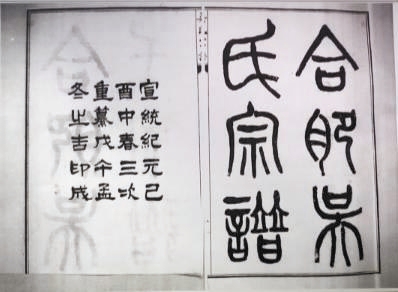 合肥吳
氏宗譜
宣統紀元己
酉中春三次
重纂戊午孟
冬之吉印成